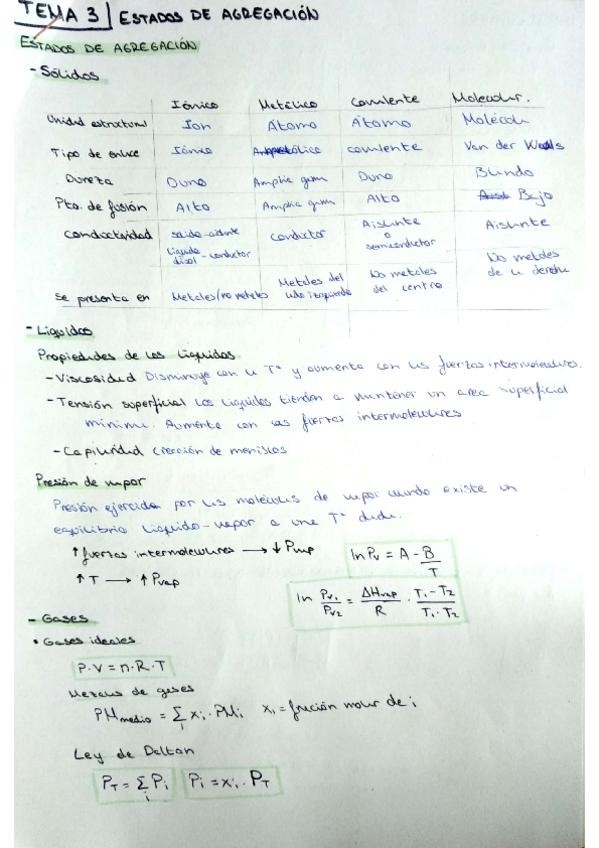 TEMA 3 | ESTADOS DE AGREGACIÓN
ESTADOS DE AGREGACIÓN
- Sólidos
Iónico Metálico Covalente Molecular.
Unidad estructural Ion Átomo Átomo Molécula
Tipo de enlace Iónico Metálico covalente Van der Waals
Dureza Duro Amplia gama Duro Blando
Pto. de fusión Alto Amplia gama Alto Bajo
Conductividad sólido-aislante líquido disol-conductor Conductor Aislante o semiconductor Aislante
Se presenta en Metales/no metales Metales del lado izquierdo No metales del centro No metales de la derecha
- Líquidos
Propiedades de los líquidos
- Viscosidad Disminuye con la Tª y aumenta con las fuerzas intermoleculares.
- Tensión superficial Los líquidos tienden a mantener un area superficial
mínima. Aumenta con las fuerzas intermoleculares
- Capilaridad Creación de meniscos
Presión de vapor
Presión ejercida por las moléculas de vapor cuando existe un
equilibrio líquido-vapor a una Tª dada.
↑ fuerzas intermoleculares → ↓ Pvap ln Pv = A - B/T
↑ T → ↑ Pvap ln Pv₁/Pv₂ = ΔHvap/R · T₁-T₂/T₁·T₂
- Gases
• Gases ideales
P·V = n·R·T
Mezclas de gases
PMmedio = Σi xi · PMi xi = fracción molar de i
Ley de Dalton
PT = Σi Pi Pi = xi · PT